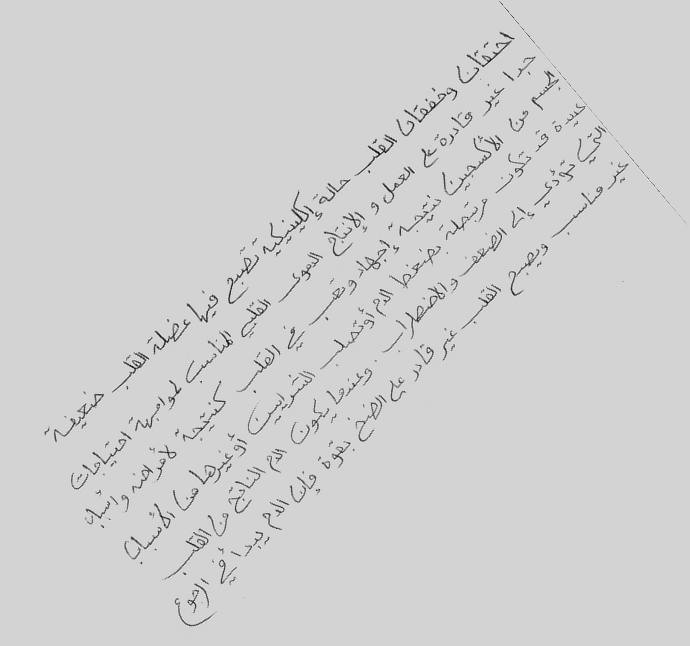 احتقان وخفقان القلب حالة إكلينيكية تصبح فيها عضلة القلب ضعيفة
جدا غير قادرة على العمل و الإنتاج القوى القلبي المناسب لمواجهة احتياجات
الجسم من الأكسجين نتيجة إجهاد وتعب في القلب كنتيجة لأمراض وأسباب
عديدة قد تكون مرتبطة بضغط الدم أو تصلب الشرايين أو غيرها من الأسباب
التي تؤدي إلى الضعف والاضطراب . وعندما يكون الدم الناتج من القلب
غير مناسب ويصبح القلب غير قادر على الضخ بقوة فإن الدم يبدأ في الرجوع